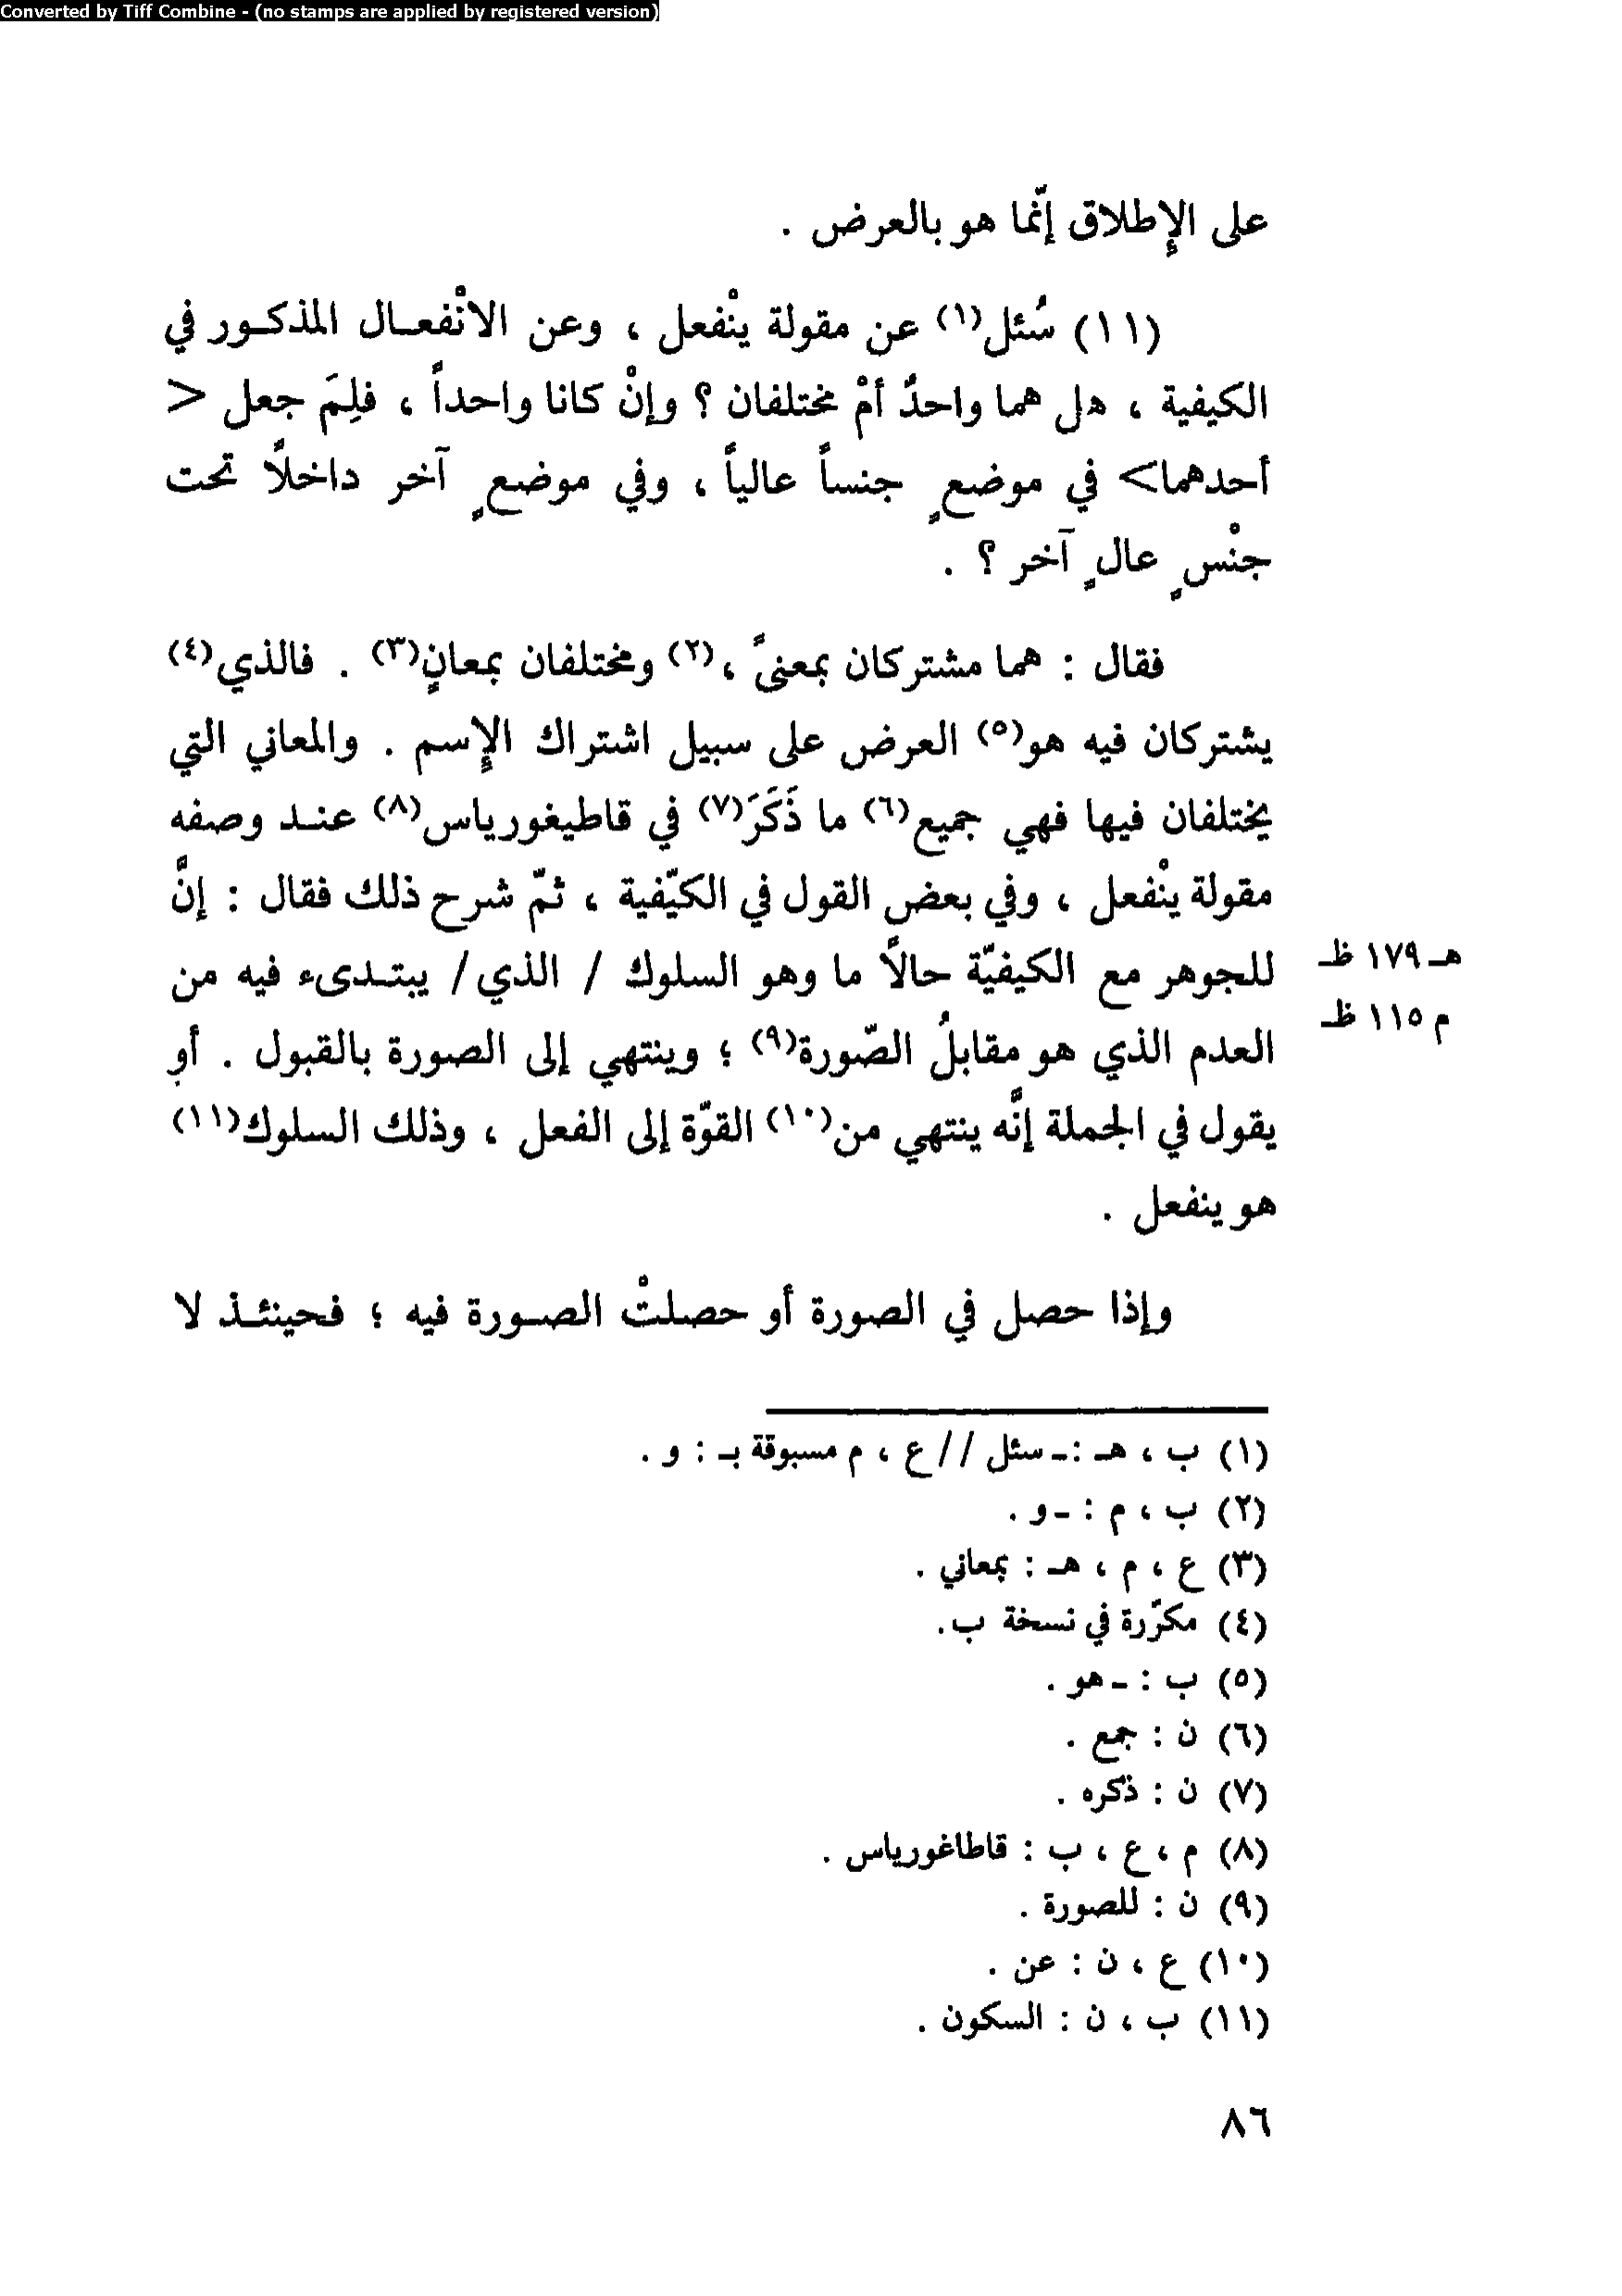 Converted by Tiff Combine - (no stamps are applied by registered version)
على الإطلاق إنّما هو بالعرض .
(١١) سُئل(١) عن مقولة ينْفعل ، وعن الانْفعـال المذكـور في
الكيفية ، هل هما واحدٌ أمْ مختلفان ؟ وإنْ كانا واحداً ، فلِمَ جعل <
أحدهما> في موضعٍ جنساً عالياً ، وفي موضعٍ آخر داخلاً تحت
جنْسٍ عالٍ آخر ؟ .
فقال : هما مشتركان بمعنىً ،(٢) ومختلفان بمعانٍ(٣) . فالذي(٤)
يشتركان فيه هو(٥) العرض على سبيل اشتراك الإسم . والمعاني التي
يختلفان فيها فهي جميع(٦) ما ذَكَرَ(٧) في قاطيغورياس(٨) عنـد وصفه
مقولة ينْفعل ، وفي بعض القول في الكيّفية ، ثمّ شرح ذلك فقال : إنَّ
للجوهر مع الكيفيّة حالاً ما وهو السلوك / الذي/ يبتـدىء فيه من
هـ ١٧٩ ظـ
العدم الذي هو مقابلُ الصّورة(٩) ؛ وينتهي إلى الصورة بالقبول . أو
م ١١٥ ظـ
يقول في الجملة إنَّه ينتهي من(١٠) القوّة إلى الفعل ، وذلك السلوك(١١)
هو ينفعل .
وإذا حصل في الصورة أو حصلتْ الصـورة فيه ؛ فحينئـذ لا
(١) ب ، هـ :ـ سئل // ع ، م مسبوقة بـ : و .
(٢) ب ، م : ـ و .
(٣) ع ، م ، هـ : بمعاني .
(٤) مكرّرة في نسخة ب.
(٥) ب : ـ هو .
(٦) ن : جمع .
(٧) ن : ذكره .
(٨) م ، ع ، ب : قاطاغورياس .
(٩) ن : للصورة .
(١٠) ع ، ن : عن .
(١١) ب ، ن : السكون .
٨٦